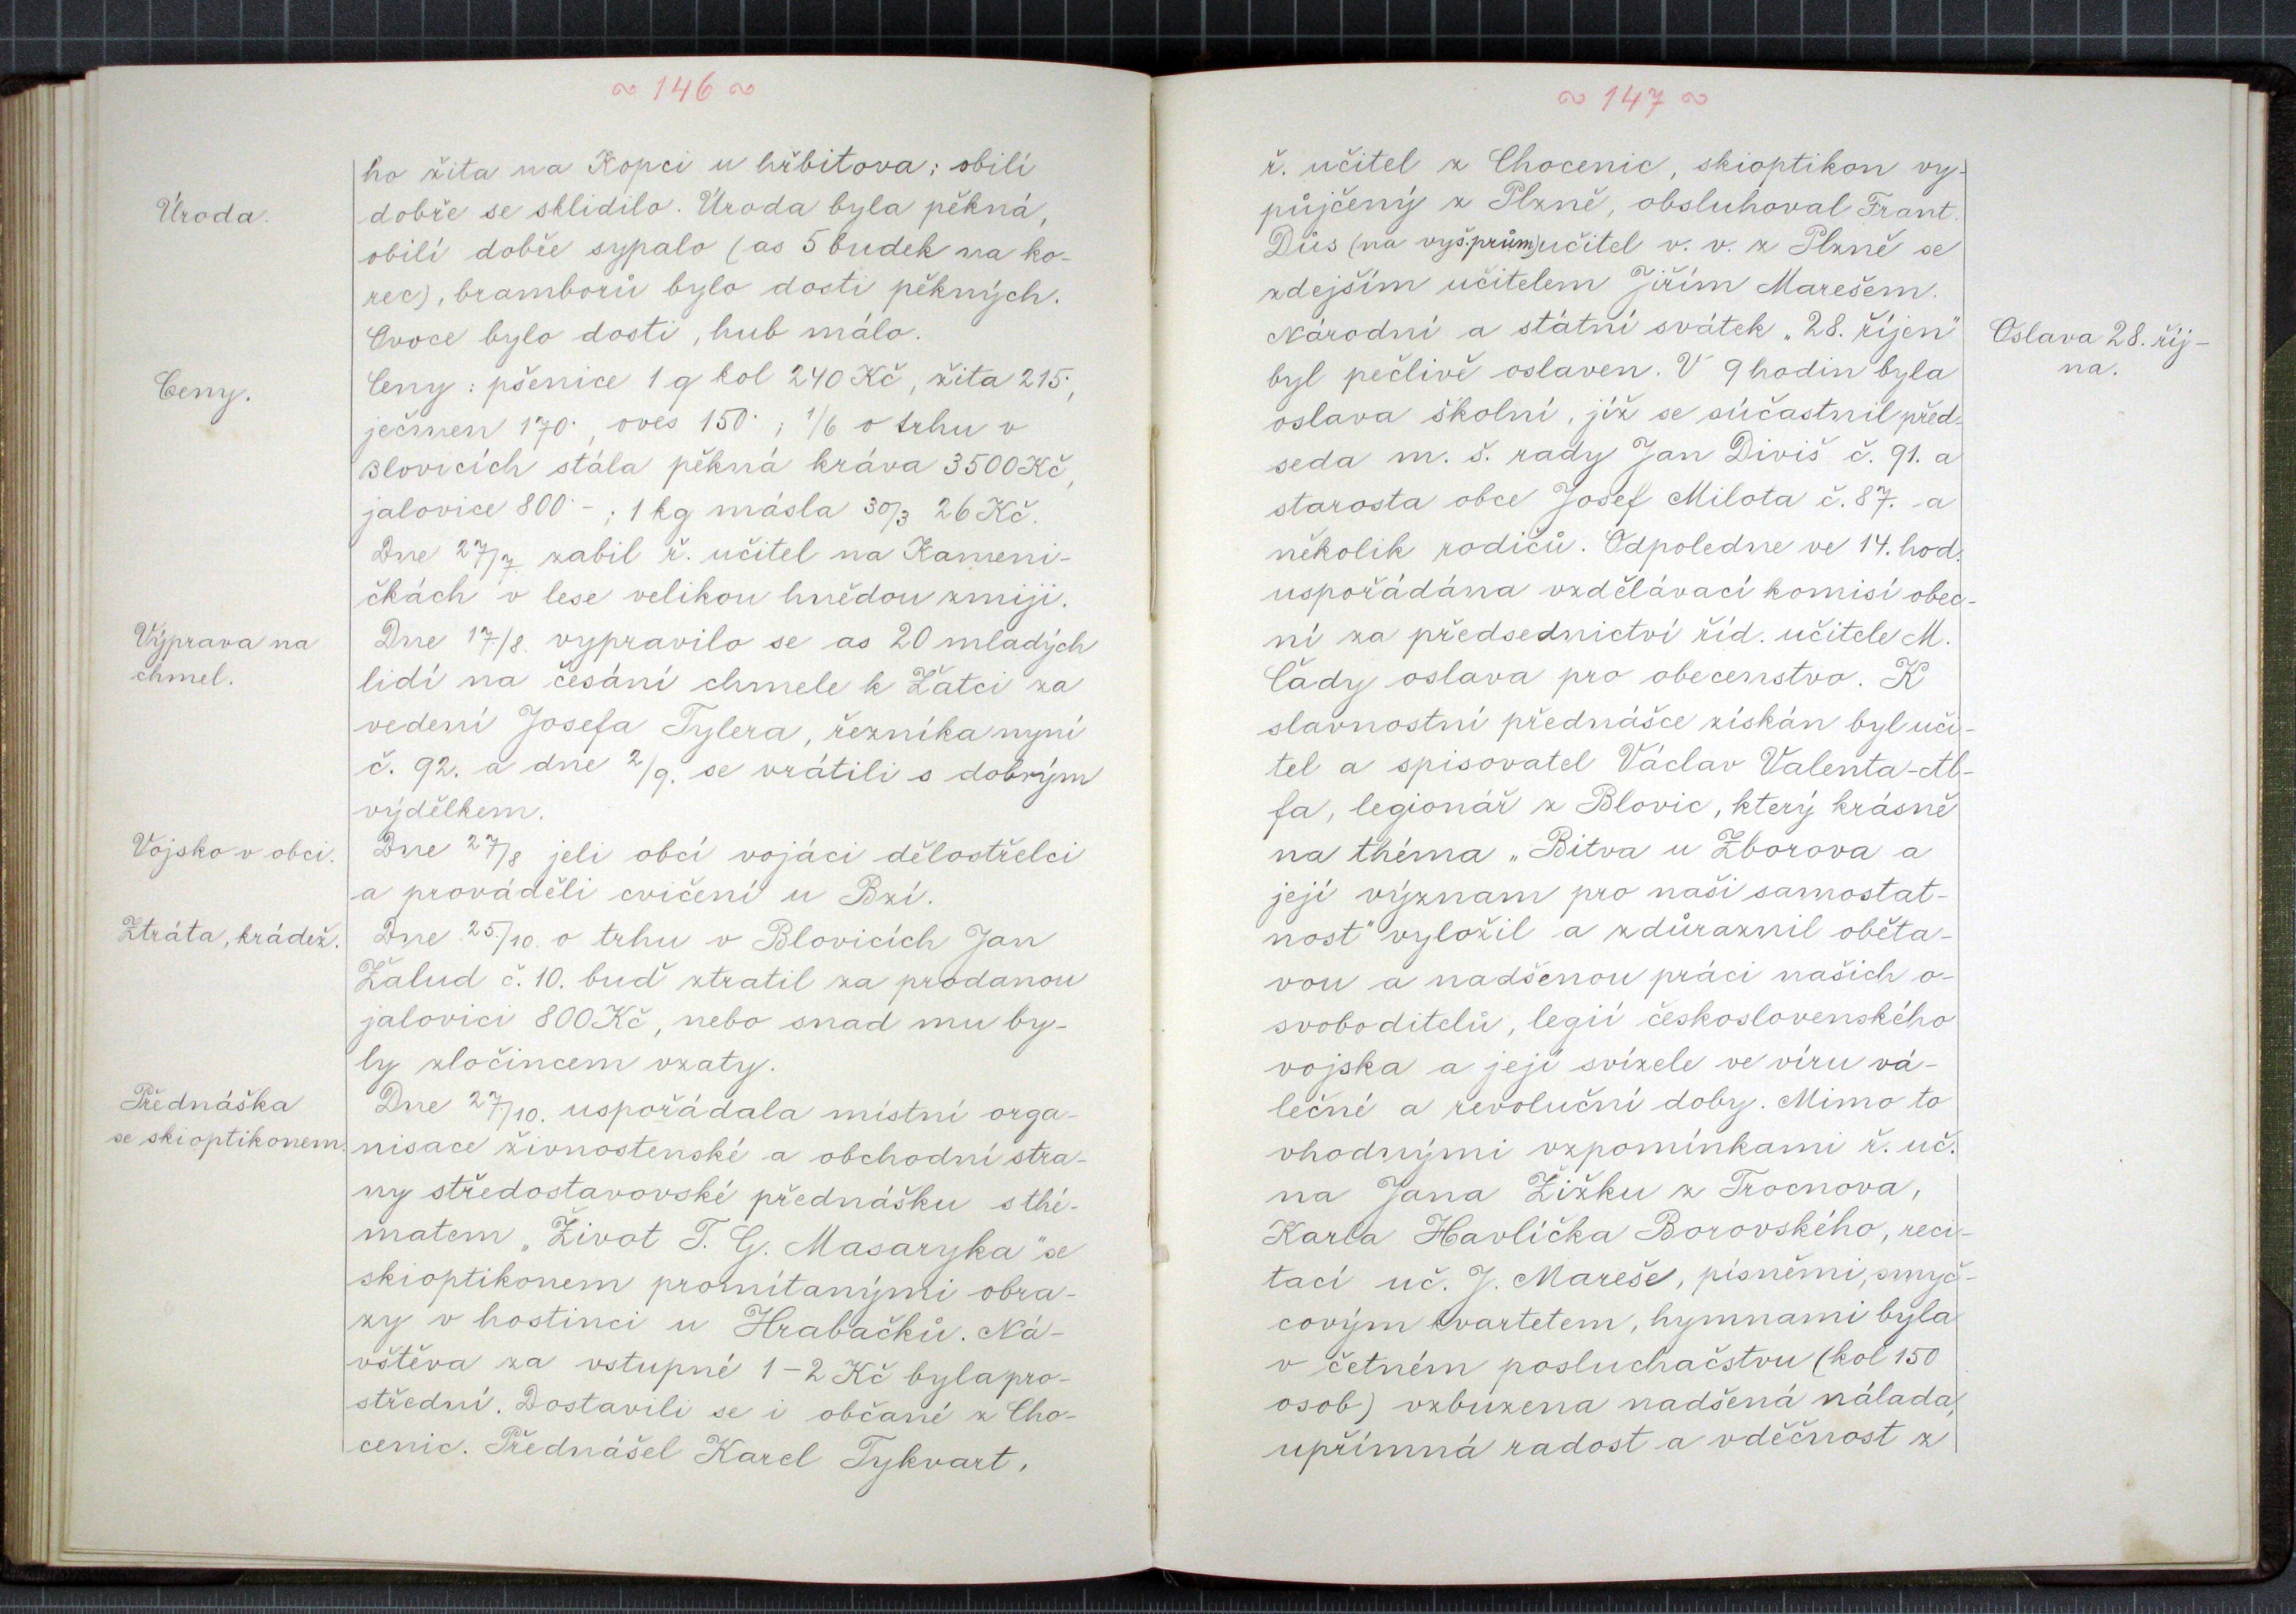 ~ 146 ~
ho žita na Kopci u hřbitova; obilí
Úroda.
dobře se sklidilo. Úroda byla pěkná,
obilí dobře sypalo (as 5 budek na ko-
rec), bramborů bylo dosti pěkných.
Ovoce bylo dosti, hub málo.
Ceny.
Ceny: pšenice 1 q kol 240 Kč, žita 215·,
ječmen 170·, oves 150·; 1/6 o trhu v
Blovicích stála pěkná kráva 3500 Kč,
jalovice 800·-; 1 kg másla 30/3 26 Kč.
Dne 27/7. zabil ř. učitel na Kameni-
čkách v lese velikou hnědou zmiji.
Výprava na
chmel.
Dne 17./8. vypravilo se as 20 mladých
lidí na česání chmele k Žatci za
vedení Josefa Tylera, řezníka nyní
č. 92. a dne 2/9. se vrátili s dobrým
výdělkem.
Vojsko v obci.
Dne 27/8 jeli obcí vojáci dělostřelci
a prováděli cvičení u Bzí.
Ztráta, krádež.
Dne 25./10. o trhu v Blovicích Jan
Žalud č. 10. buď ztratil za prodanou
jalovici 800 Kč, nebo snad mu by-
ly zločincem vzaty.
Přednáška
se skioptikonem.
Dne 27/10. uspořádala místní orga-
nisace živnostenské a obchodní stra-
ny středostavovské přednášku s thé-
matem „Život T. G. Masaryka" se
skioptikonem promítanými obra-
zy v hostinci u Hrabačků. Ná-
vštěva za vstupné 1-2 Kč byla pro-
střední. Dostavili se i občané z Cho-
cenic. Přednášel Karel Tykvart,
~ 147 ~
ř. učitel z Chocenic, skioptikon vy-
půjčený z Plzně, obsluhoval Frant.
Důs (na vyš. prům) učitel v. v. z Plzně se
zdejším učitelem Jiřím Marešem.
Oslava 28. říj-
na.
Národní a státní svátek „28. říjen"
byl pečlivě oslaven. V 9 hodin byla
oslava školní, jíž se súčastnil před-
seda m. š. rady Jan Diviš č. 91. a
starosta obce Josef Milota č. 87. a
několik rodičů. Odpoledne ve 14. hod.
uspořádána vzdělávací komisí obec-
ní za předsednictví říd. učitele M.
Čady oslava pro obecenstvo. K
slavnostní přednášce získán byl uči-
tel a spisovatel Václav Valenta-Al-
fa, legionář z Blovic, který krásně
na théma „Bitva u Zborova a
její význam pro naši samostat-
nost" vyložil a zdůraznil oběta-
vou a nadšenou práci našich o-
svoboditelů, legií československého
vojska a její svízele ve víru vá-
lečné a revoluční doby. Mimo to
vhodnými vzpomínkami ř. uč.
na Jana Žižku z Trocnova,
Karla Havlíčka Borovského, reci-
tací uč. J. Mareše, písněmi, smyč-
covým kvartetem, hymnami byla
v četném posluchačstvu (kol 150
osob) vzbuzena nadšená nálada,
upřímná radost a vděčnost z